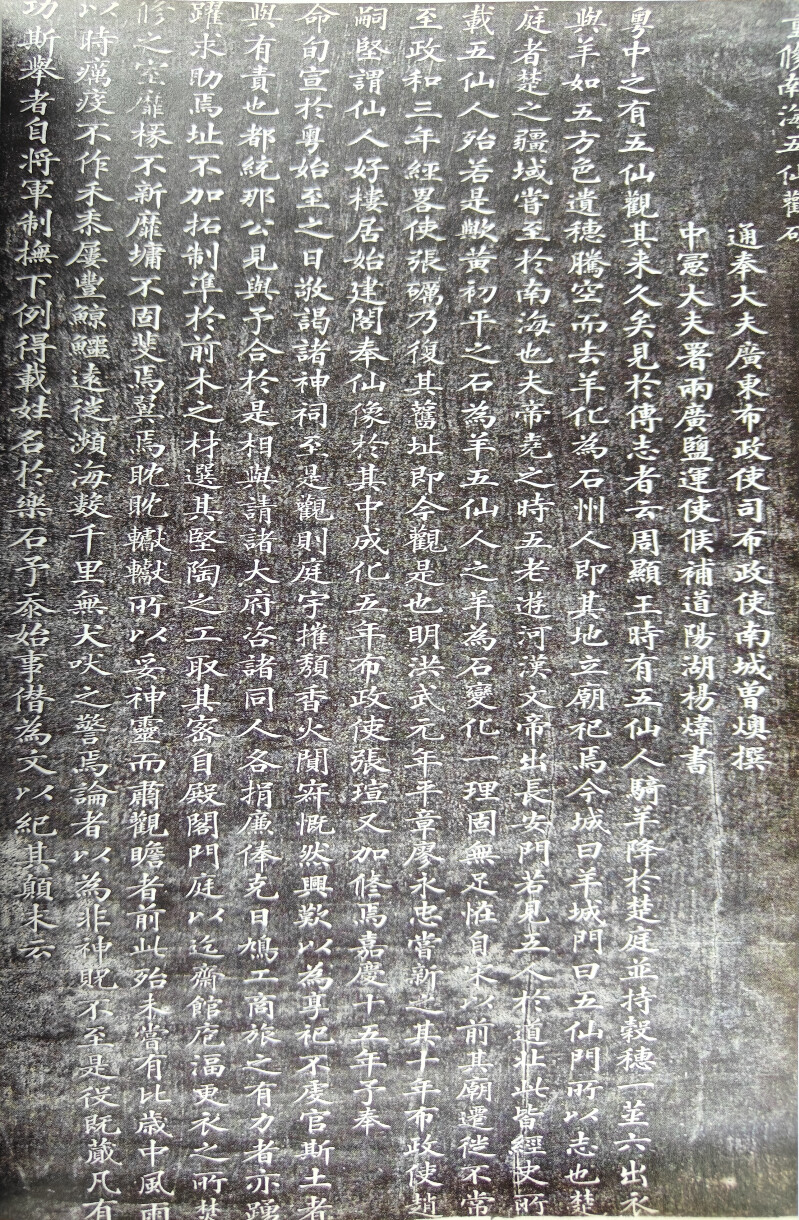 重修南海五仙觀碑
通奉大夫廣東布政使司布政使南城曾燠撰
中憲大夫署兩廣鹽運使候補道陽湖楊煒書
粵中之有五仙觀其来久矣見於傳志者云周顯王時有五仙人騎羊降於楚庭並持穀穗一莖六出衣
與羊如五方色遺穗騰空而去羊化為石州人即其地立廟祀焉今城曰羊城門曰五仙門所以志也楚
庭者楚之疆域嘗至於南海也夫帝堯之時五老遊河漢文帝出長安門若見五人於道北此皆經史所
載五仙人殆若是歟黃初平之石為羊五仙人之羊為石變化一理固無足怪自宋以前其廟遷徙不常
至政和三年經畧使張礪乃復其舊址即今觀是也明洪武元年平章廖永忠嘗新之其十年布政使趙
嗣堅謂仙人好樓居始建閣奉仙像於其中成化五年布政使張瑄又加修焉嘉慶十五年予奉
命旬宣於粵始至之日敬謁諸神祠至是觀則庭宇摧頹香火闃寂慨然興歎以為專祀不虔官斯土者
與有責也都統那公見與予合於是相與請諸大府咨諸同人各捐廉俸克日鳩工商旅之有力者亦踴
躍求助焉址不加拓制準於前木之材選其堅陶之工取其密自殿閣門庭以迄齋館庖湢更衣之所焚
修之室靡椽不新靡墉不固斐焉翼焉眈眈轆轆所以妥神靈而肅觀瞻者前此殆未嘗有比歲中風雨
以時癘疫不作禾黍屢豐鯨鱷遠徙瀕海數千里無犬吠之警焉論者以為非神貺不至是役既蕆凡有
功斯舉者自將軍制撫下例得載姓名於樂石予忝始事僭為文以紀其顛末云